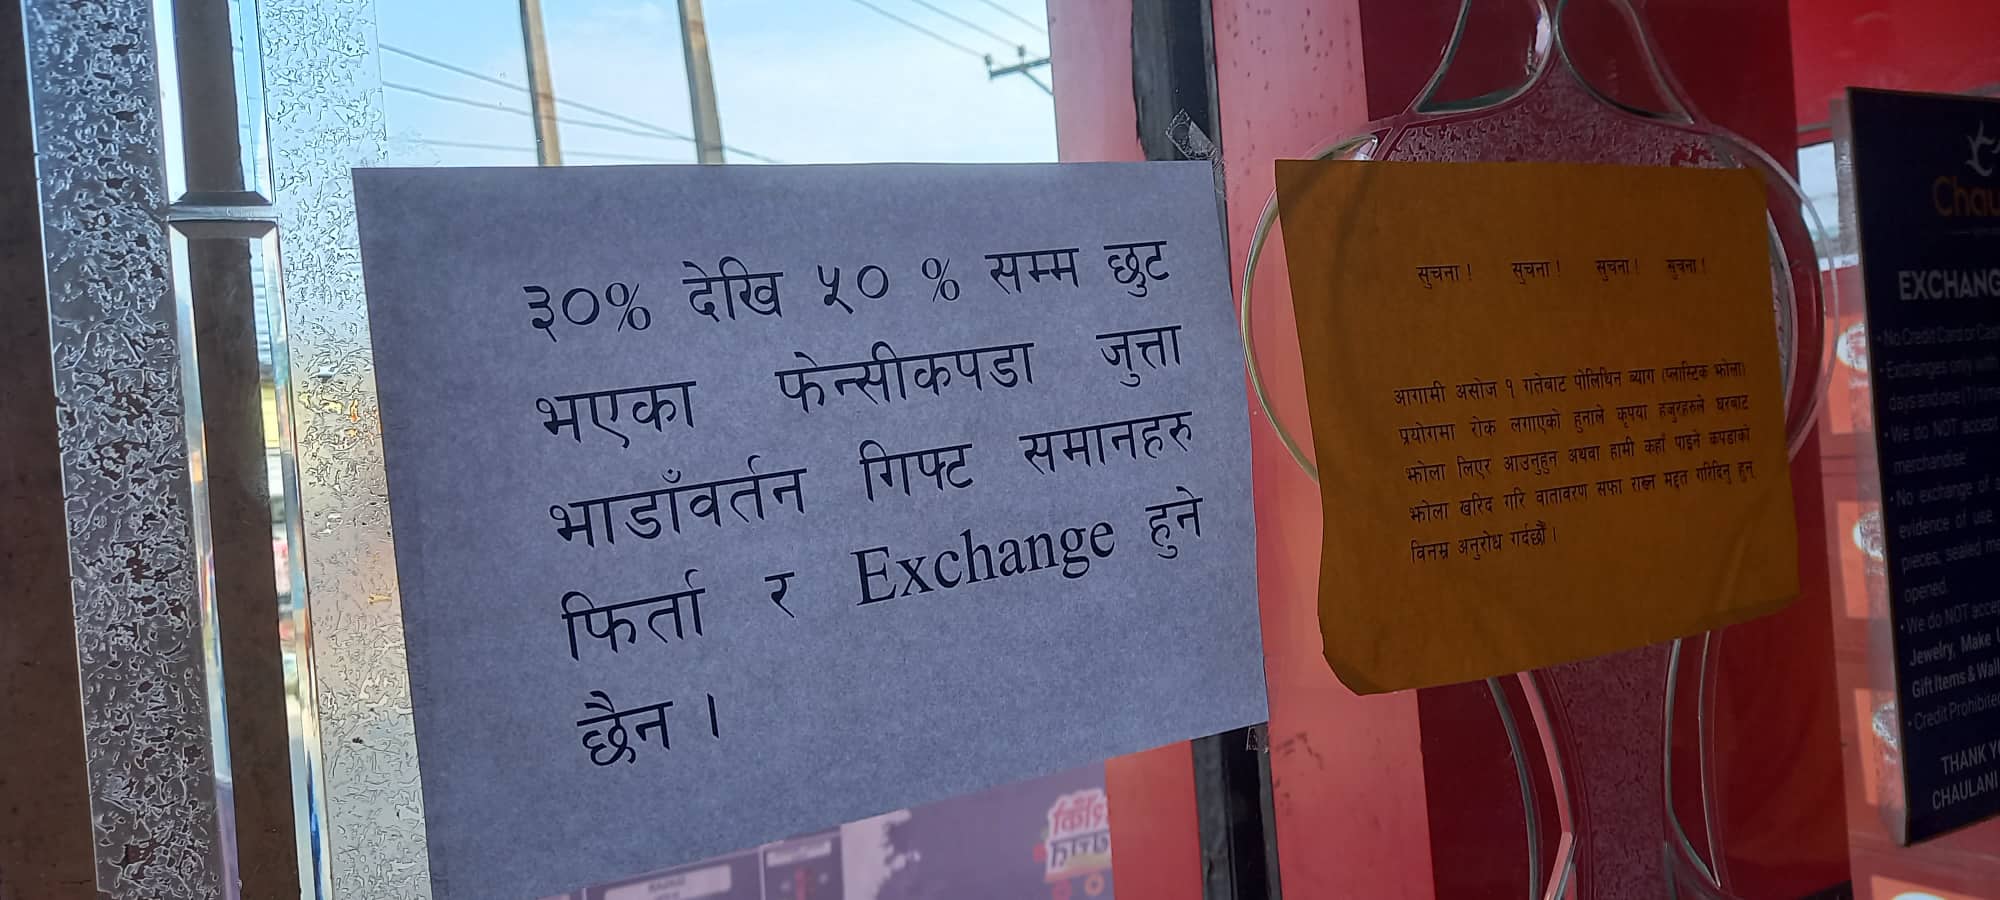 ३०% देखि ५० % सम्म छुट
भएका फेन्सीकपडा जुत्ता
भाडाँवर्तन गिफ्ट समानहरु
फिर्ता र Exchange हुने
छैन ।
सुचना ! सुचना ! सुचना ! सुचना !
आगामी असोज १ गतेबाट पोलिथिन ब्याग (प्लास्टिक झोला)
प्रयोगमा रोक लगाएको हुनाले कृपया हजुरहरुले घरबाट
झोला लिएर आउनुहुन अथवा हामी कहाँ पाइने कपडाको
झोला खरिद गरि वातावरण सफा राख्न मद्दत गरिदिनु हुन्
विनम्र अनुरोध गर्दछौं ।
EXCHANG
• No Credit Card or Cas
• Exchanges only with
days and one (1) time
• We do NOT accept
merchandise
• No exchange of
evidence of use
pieces, sealed
opened.
• We do NOT accep
Jewelry, Make
Gift Items & Wall
• Credit Prohibite
THANK Y
CHAULANI